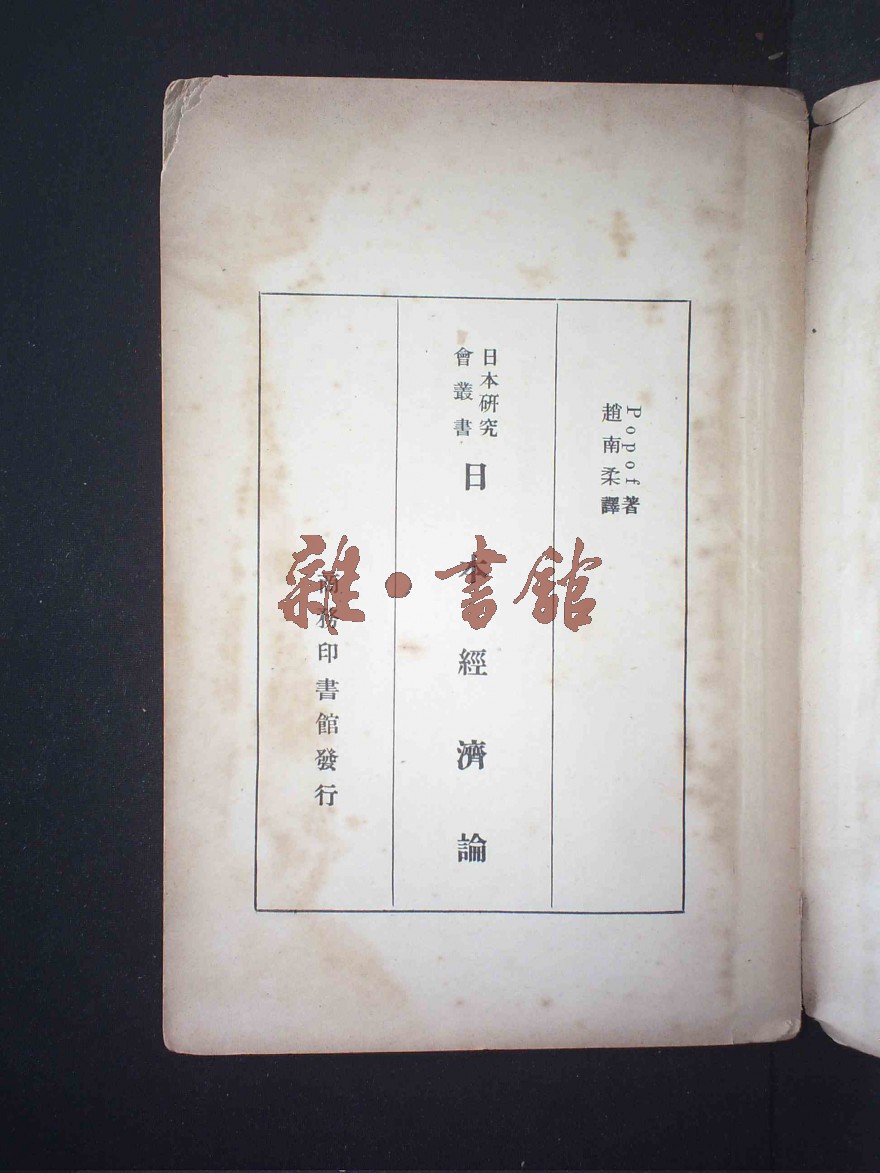 Popof著
趙南柔譯
日本研究
會叢書
日本經濟論
商務印書館發行
雜·書館